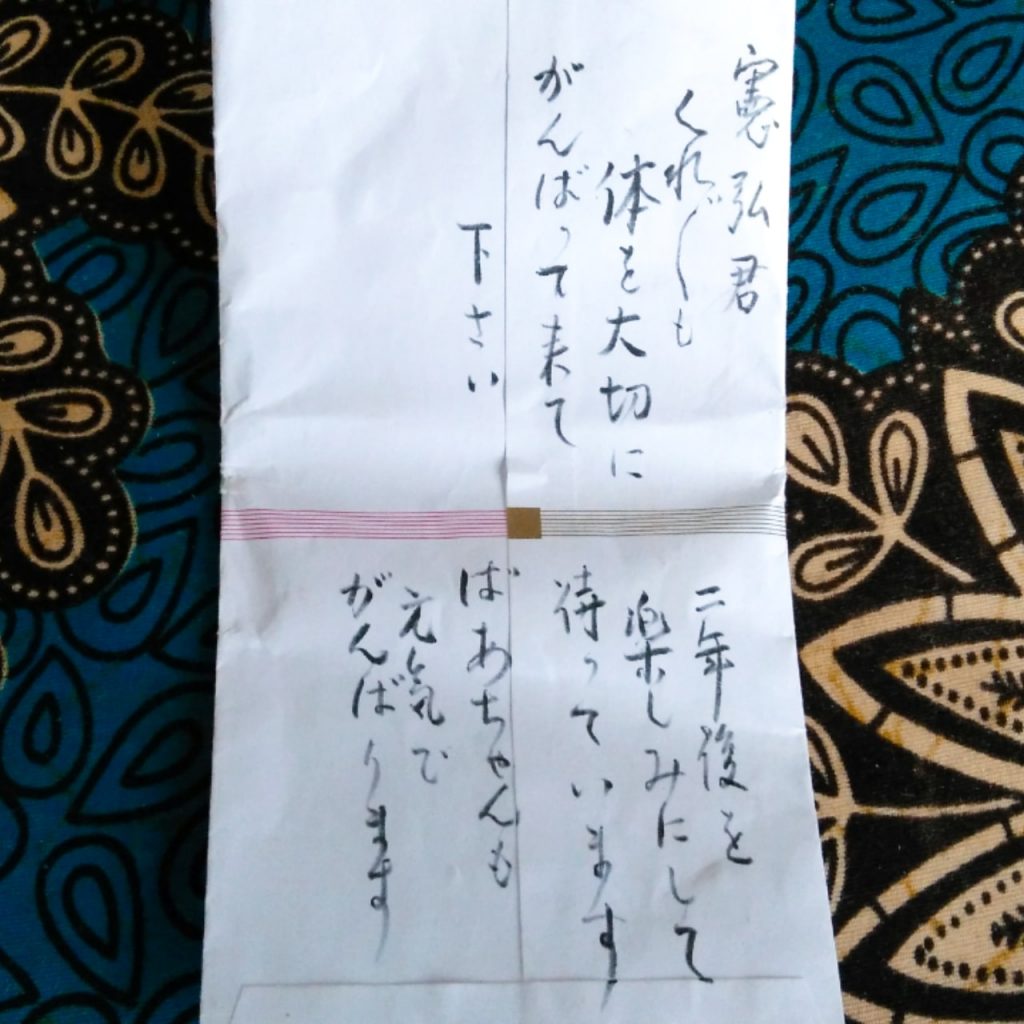 憲弘君
くれ〴〵も
体を大切に
がんばって来て
下さい
二年後を
楽しみにして
待っています
ばあちゃんも
元気で
がんばります